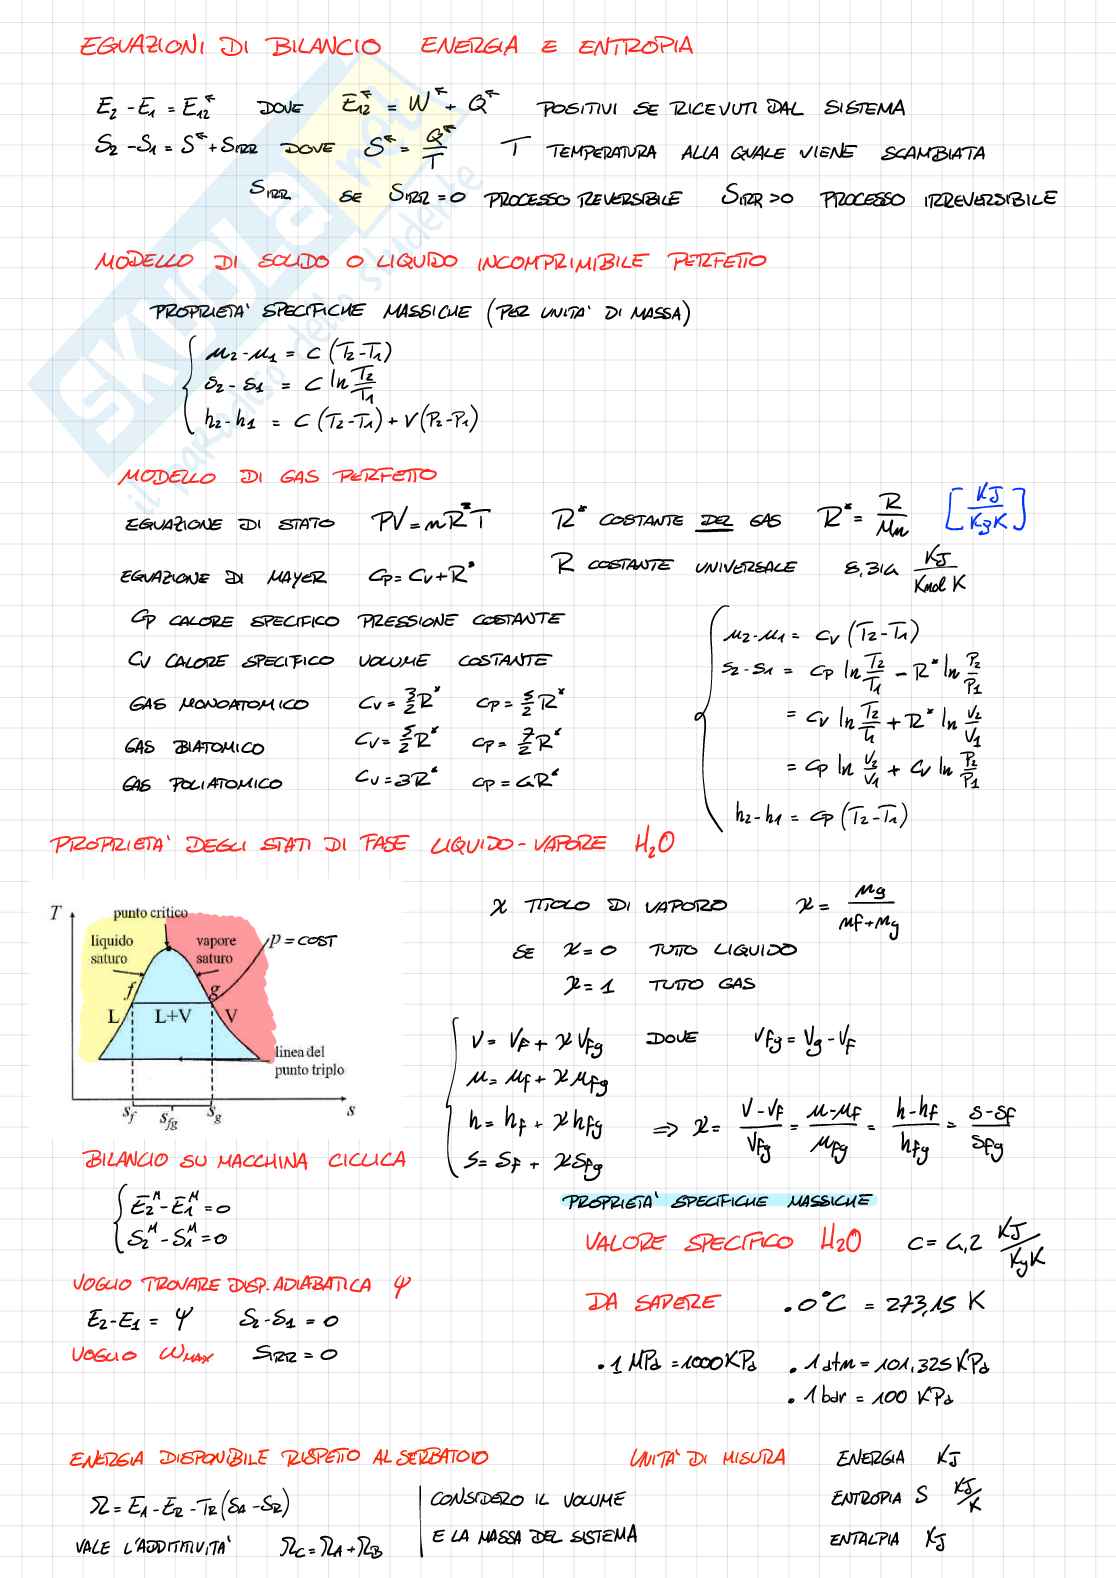 EQUAZIONI DI BILANCIO ENERGIA E ENTROPIA
E₂ - E₁ = E₁₂^← DOVE E₁₂^← = W^← + Q^← POSITIVI SE RICEVUTI DAL SISTEMA
S₂ - S₁ = S^← + SIRR DOVE S^← = Q^←/T T TEMPERATURA ALLA QUALE VIENE SCAMBIATA
SIRR SE SIRR = 0 PROCESSO REVERSIBILE SIRR > 0 PROCESSO IRREVERSIBILE
MODELLO DI SOLIDO O LIQUIDO INCOMPRIMIBILE PERFETTO
PROPRIETA' SPECIFICHE MASSICHE (PER UNITA' DI MASSA)
u₂ - u₁ = c (T₂ - T₁)
s₂ - s₁ = c ln T₂/T₁
h₂ - h₁ = c (T₂ - T₁) + v (P₂ - P₁)
MODELLO DI GAS PERFETTO
EQUAZIONE DI STATO PV = mR*T R* COSTANTE DEL GAS R* = R/Mm [KJ/KgK]
EQUAZIONE DI MAYER Cp = Cv + R* R COSTANTE UNIVERSALE 8,314 KJ/Kmol K
Cp CALORE SPECIFICO PRESSIONE COSTANTE
Cv CALORE SPECIFICO VOLUME COSTANTE
GAS MONOATOMICO Cv = 3/2 R* Cp = 5/2 R*
GAS BIATOMICO Cv = 5/2 R* Cp = 7/2 R*
GAS POLIATOMICO Cv = 3R* Cp = 4R*
u₂ - u₁ = Cv (T₂ - T₁)
s₂ - s₁ = Cp ln T₂/T₁ - R* ln P₂/P₁
= Cv ln T₂/T₁ + R* ln V₂/V₁
= Cp ln V₂/V₁ + Cv ln P₂/P₁
h₂ - h₁ = Cp (T₂ - T₁)
PROPRIETA' DEGLI STATI DI FASE LIQUIDO - VAPORE H₂O
T
punto critico
liquido saturo
vapore saturo
p = COST
f
g
L
L+V
V
linea del punto triplo
sf
sfg
sg
s
x TITOLO DI VAPORO x = mg/(mf + mg)
SE x = 0 TUTTO LIQUIDO
x = 1 TUTTO GAS
v = vf + x vfg DOVE vfg = vg - vf
u = uf + x ufg
h = hf + x hfg ⇒ x = (v - vf)/vfg = (u - uf)/ufg = (h - hf)/hfg = (s - sf)/sfg
s = sf + x sfg
PROPRIETA' SPECIFICHE MASSICHE
BILANCIO SU MACCHINA CICLICA
E₂^M - E₁^M = 0
S₂^M - S₁^M = 0
VALORE SPECIFICO H₂O c = 4,2 KJ/KgK
VOGLIO TROVARE DISP. ADIABATICA Ψ
E₂ - E₁ = Ψ S₂ - S₁ = 0
VOGLIO WMAX SIRR = 0
DA SAPERE . 0°C = 273,15 K
. 1 MPa = 1000 KPa . 1 atm = 101,325 KPa
. 1 bar = 100 KPa
ENERGIA DISPONIBILE RISPETTO AL SERBATOIO
Ω = E₁ - ER - TR (S₁ - SR)
VALE L'ADDITTIVITA' ΩC = ΩA + ΩB
CONSIDERO IL VOLUME
E LA MASSA DEL SISTEMA
UNITA' DI MISURA ENERGIA KJ
ENTROPIA S KJ/K
ENTALPIA KJ
SKUOLA
il paradiso dello studente